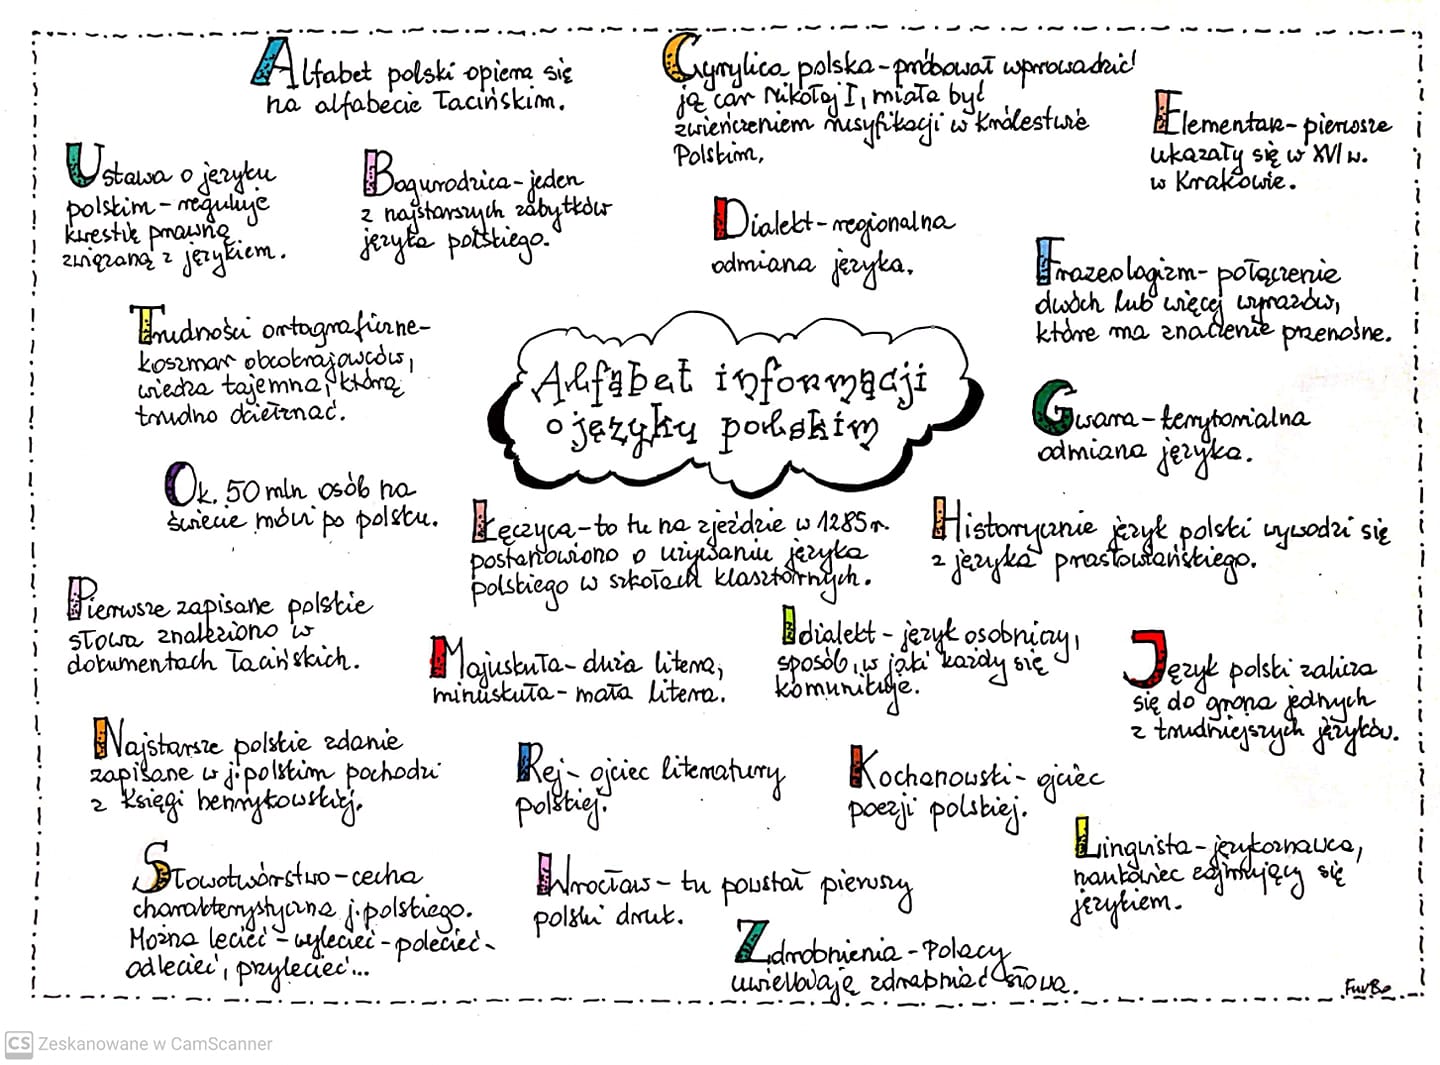 Alfabet polski opiera się
na alfabecie łacińskim.
Cyrylica polska - próbował wprowadzić
ją car Mikołaj I, miała być
zwieńczeniem rusyfikacji w Królestwie
Polskim.
Elementarz - pierwsze
ukazały się w XVI w.
w Krakowie.
Ustawa o języku
polskim - reguluje
kwestię prawną
związaną z językiem.
Bogurodzica - jeden
z najstarszych zabytków
języka polskiego.
Dialekt - regionalna
odmiana języka.
Frazeologizm - połączenie
dwóch lub więcej wyrazów,
które ma znaczenie przenośne.
Trudności ortograficzne -
koszmar obcokrajowców,
wiedza tajemna, którą
trudno dzierżać.
Alfabet informacji
o języku polskim
Gwara - terytorialna
odmiana języka.
Ok. 50 mln osób na
świecie mówi po polsku.
Łęczyca - to tu na zjeździe w 1285 r.
postanowiono o używaniu języka
polskiego w szkołach klasztornych.
Historycznie język polski wywodzi się
z języka prasłowiańskiego.
Pierwsze zapisane polskie
słowa znaleziono w
dokumentach łacińskich.
Majuskuła - duża litera,
minuskuła - mała litera.
Idialekt - język osobniczy,
sposób, w jaki każdy się
komunikuje.
Język polski zalicza
się do grona jednych
z trudniejszych języków.
Najstarsze polskie zdanie
zapisane w j. polskim pochodzi
z Księgi henrykowskiej.
Rej - ojciec literatury
polskiej.
Kochanowski - ojciec
poezji polskiej.
Lingwista - językoznawca,
naukowiec zajmujący się
językiem.
Słowotwórstwo - cecha
charakterystyczna j. polskiego.
Można lecieć - wylecieć - polecieć -
odlecieć, przylecieć...
Wrocław - tu powstał pierwszy
polski druk.
Zdrobnienia - Polacy
uwielbiają zdrabniać słowa.
CS Zeskanowane w CamScanner